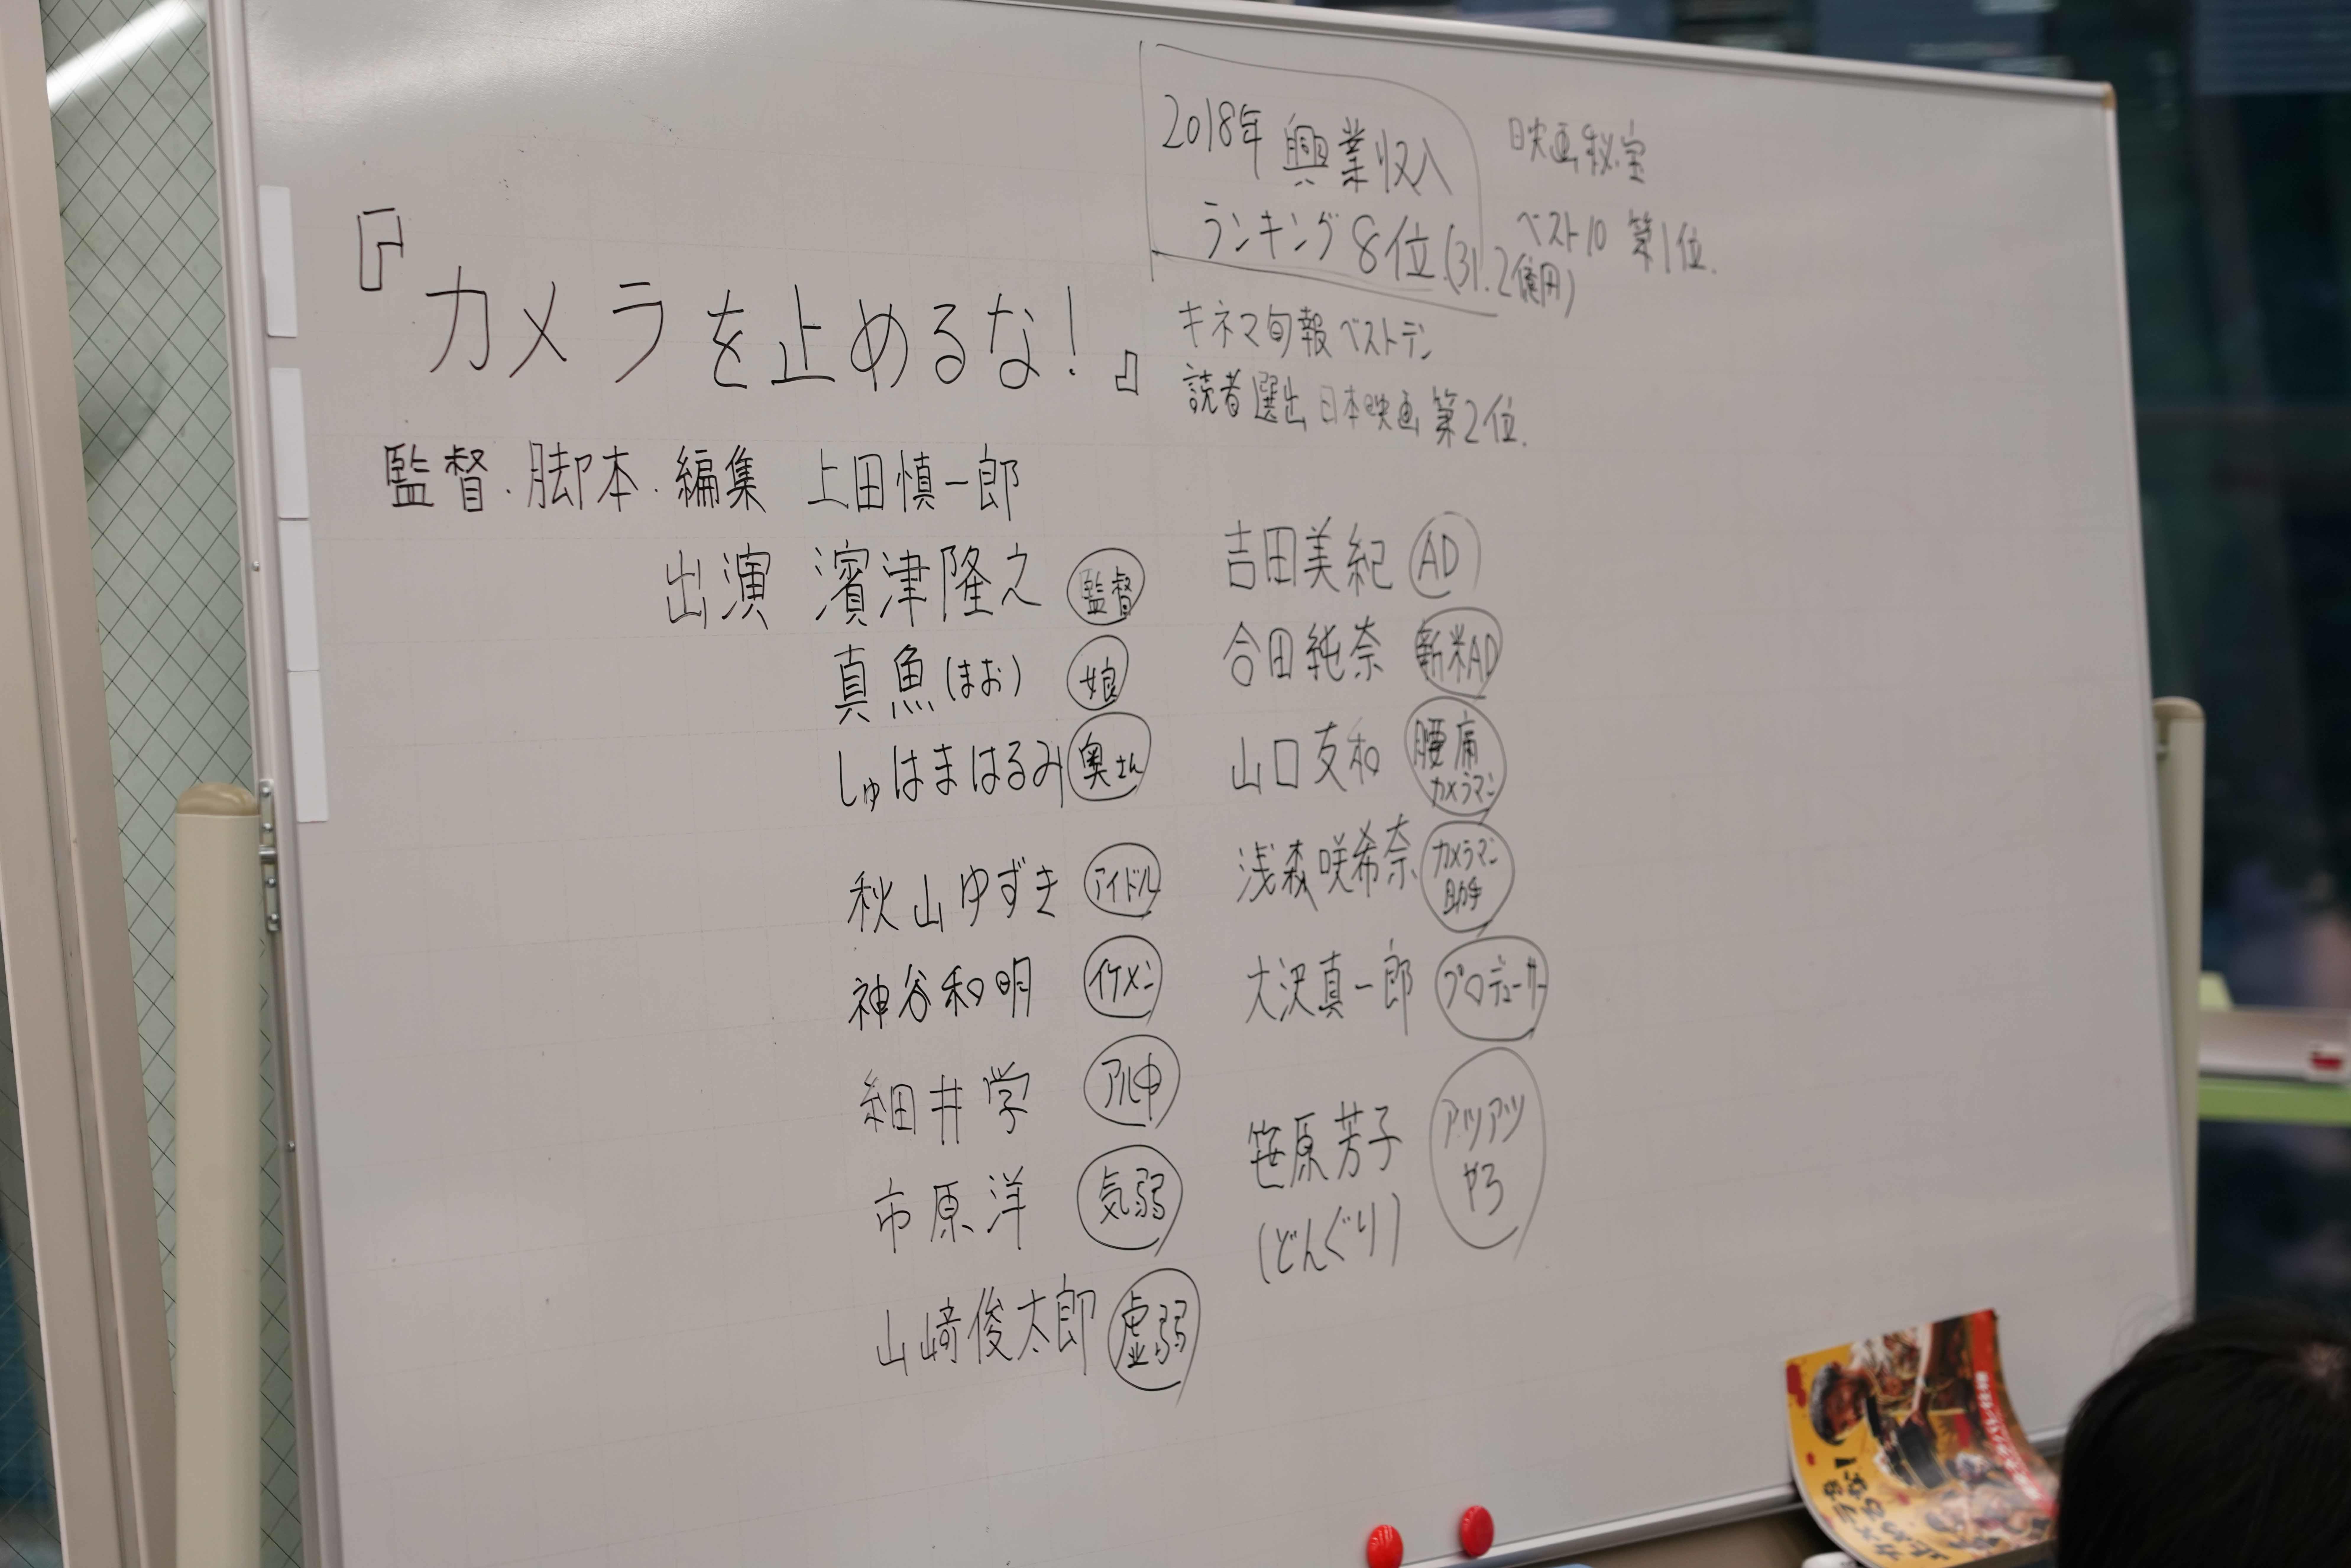 2018年 興業収入
ランキング 8位.(31.2億円)
映画秘宝
ベスト10 第1位.
『カメラを止めるな!』
キネマ旬報 ベストテン
読者選出 日本映画 第2位.
監督.脚本.編集 上田慎一郎
出演 濱津隆之 監督
真魚(まお) 娘
しゅはまはるみ 奥さん
秋山ゆずき アイドル
神谷和明 イケメン
細井学 アル中
市原洋 気弱
山﨑俊太郎 虚弱
吉田美紀 AD
合田純奈 新米AD
山口友和 腰痛
カメラマン
浅森咲希奈 カメラマン
助手
大沢真一郎 プロデューサー
笹原芳子 アツアツ
やろ
(どんぐり)
カメラを
止めるな!